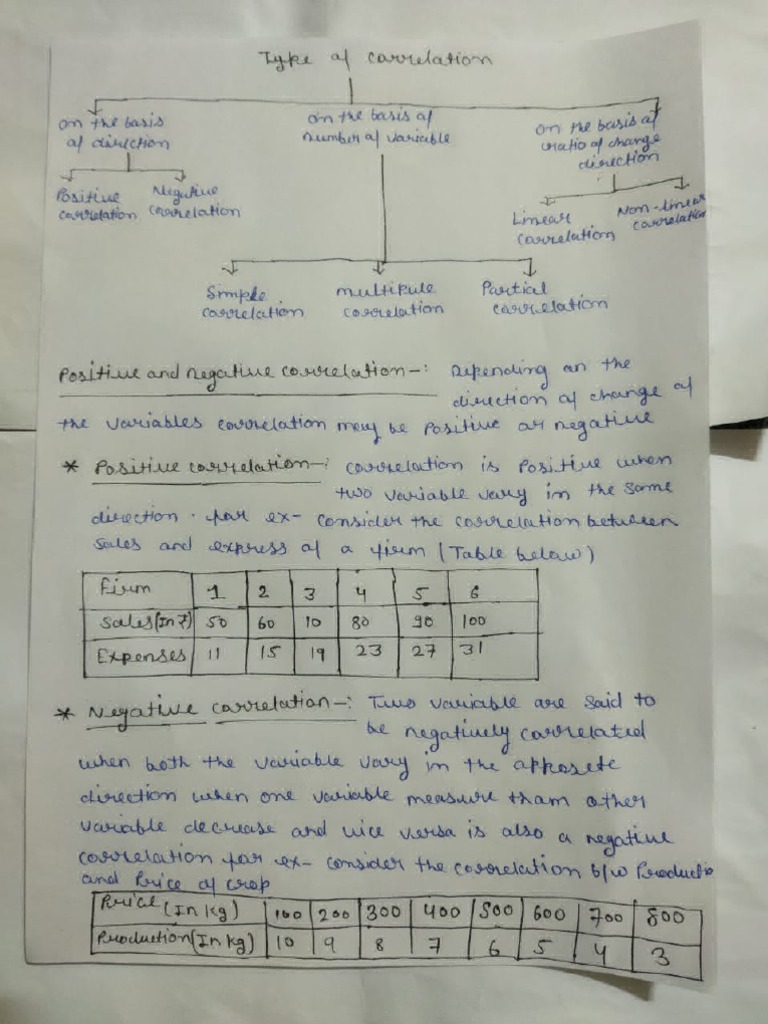 Type of correlation
on the basis of direction
on the basis of number of variable
on the basis of ratio of change direction
Positive correlation
Negative correlation
Linear correlation
Non-linear correlation
Simple correlation
multipule correlation
Partial correlation
Positive and negative correlation-: Depending on the
direction of change of
the variables correlation may be Positive or negative
* Positive correlation-: correlation is Positive when
two variable vary in the same
direction. for ex- consider the correlation between
sales and express of a firm (Table below)
Firm 1 2 3 4 5 6
Sales(In ₹) 50 60 10 80 90 100
Expenses 11 15 19 23 27 31
* Negative correlation-: Two variable are said to
be negatively correlated
when both the variable vary in the apposete
direction when one variable measure tham other
variable decrease and vice versa is also a negative
correlation for ex- consider the correlation b/w Productio
and Price of crop
Price (In kg) 100 200 300 400 500 600 700 800
Production(In kg) 10 9 8 7 6 5 4 3